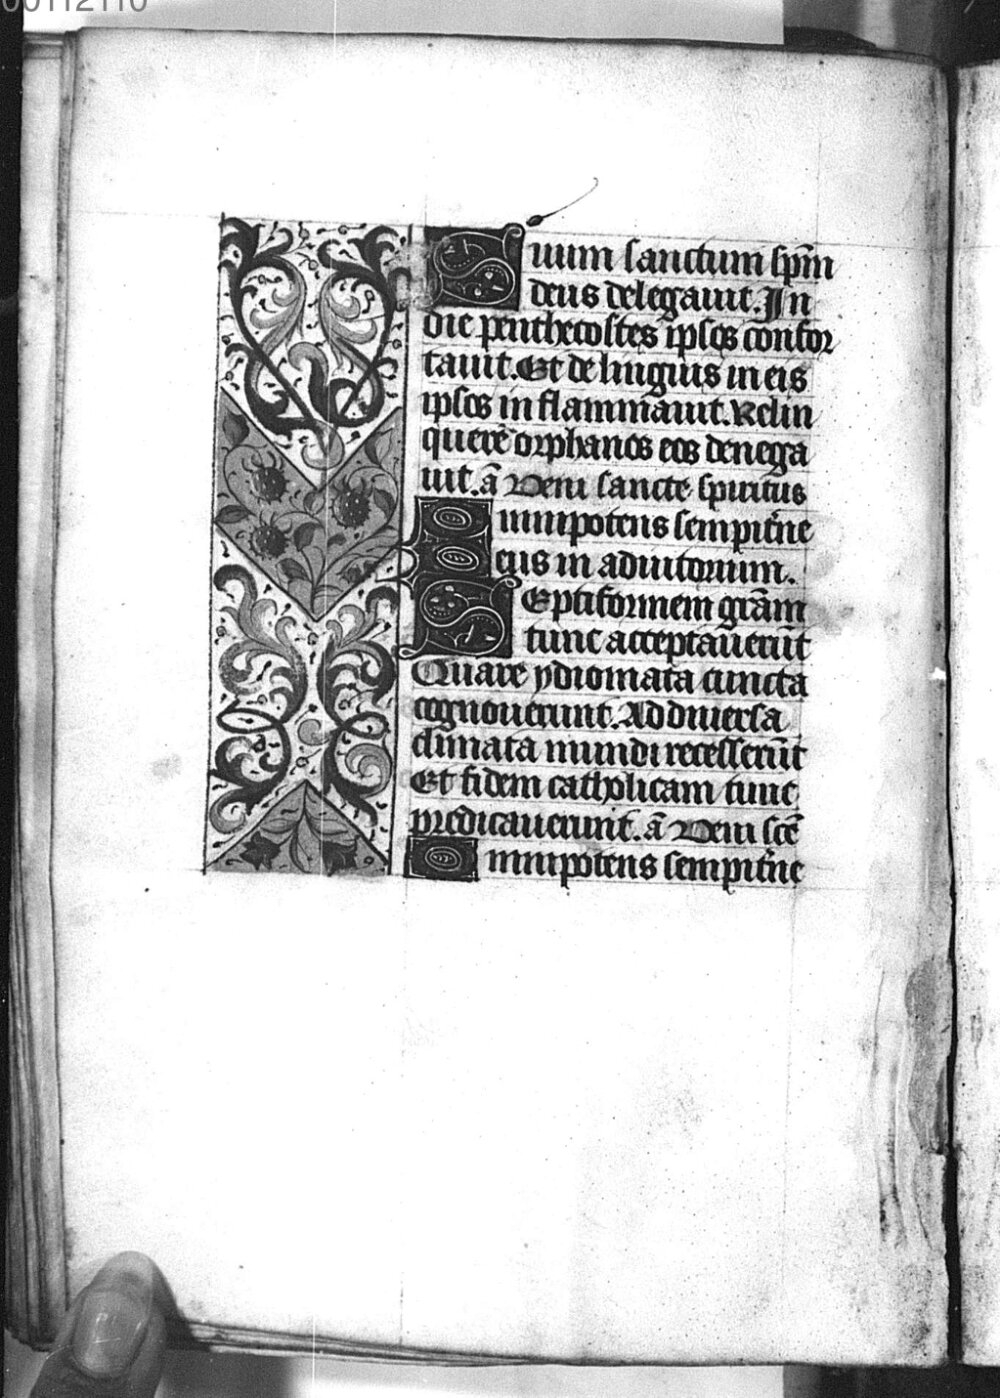 00112110
Suum sanctum spm̄
deus delegauit. In
die penthecostes ipsos confor
tauit. Et de linguis in eis
ipsos inflammauit. Relin
quere orphanos eos denega
uit. a᷃ Veni sancte spiritus
Omnipotens sempit̄ne
Deus in adiutorium.
Septiformem grām
tunc acceptauerūt
Quare ydiomata cuncta
cognouerunt. Ad diuersa
climata mundi recesserūt
Et fidem catholicam tunc
predicauerunt. a᷃ Veni sc̄e
Omnipotens sempit̄ne